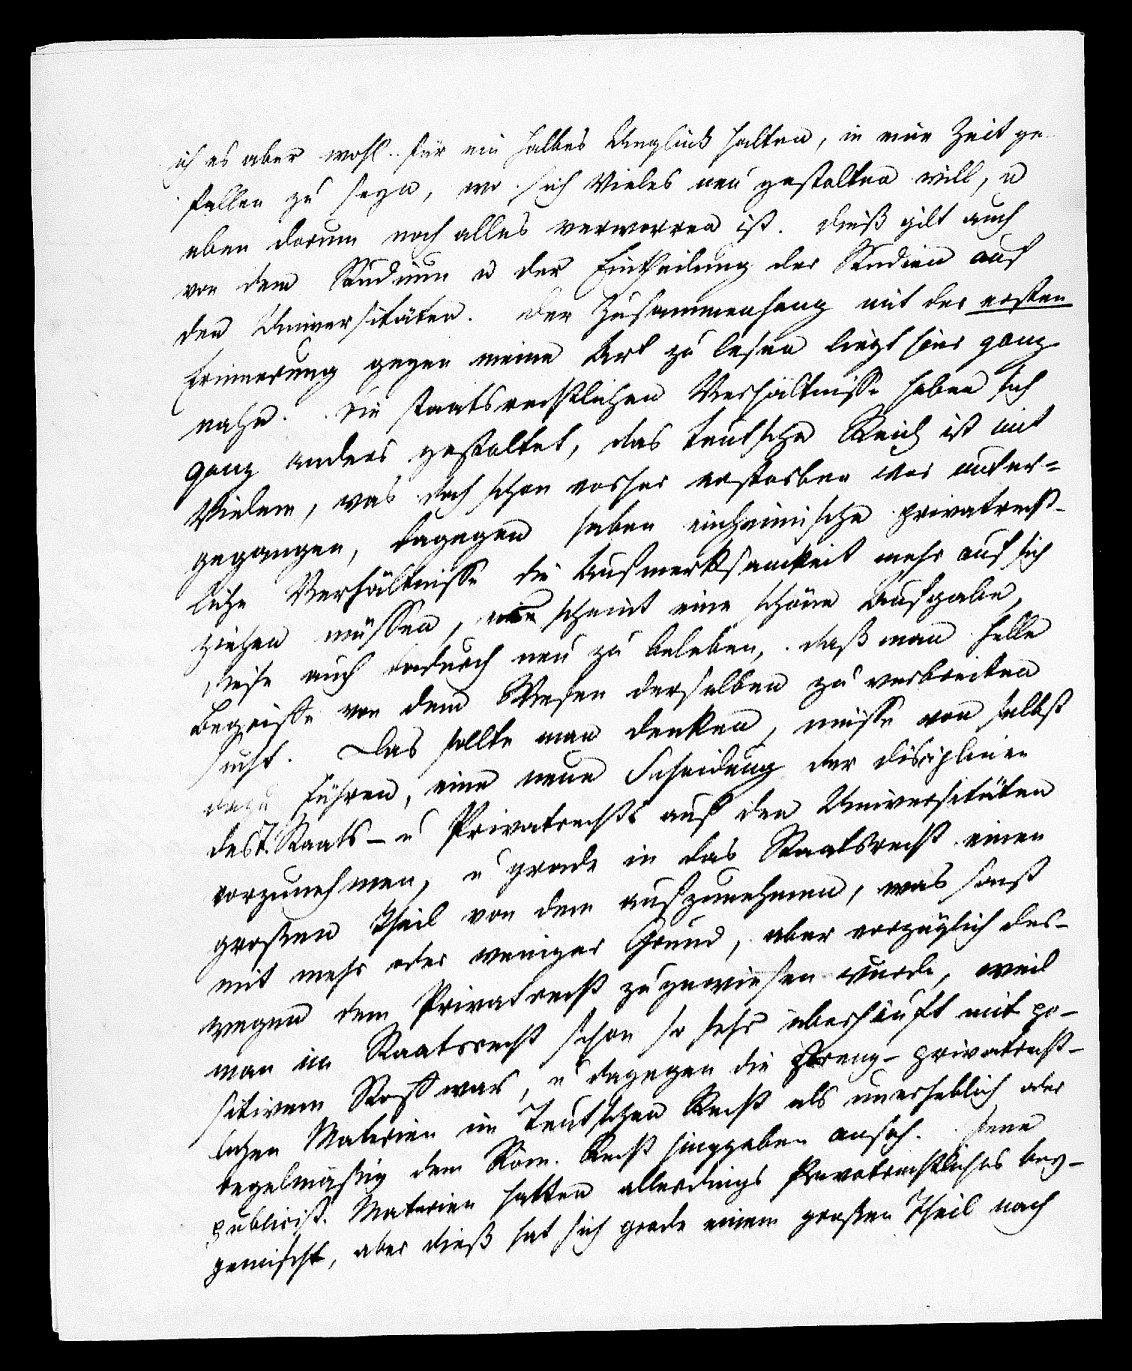 ich es aber wohl für ein halbes Unglück halten, in eine Zeit ge-
fallen zu seyn, wo sich Vieles neu gestalten will, u
eben darum noch alles verworren ist. Dieß gilt auch
von dem Studium u der Eintheilung der Studien auf
den Universitäten. Der Zusammenhang mit der ersten
Erinnerung gegen meine Art zu lesen liegt hier ganz
nahe. Die staatsrechtlichen Verhältnisse haben sich
ganz anders gestaltet, das teutsche Reich ist mit
Vielem, was doch schon vorher erstorben war unter=
gegangen, dagegen haben einheimische privatrecht-
liche Verhältnisse die Aufmerksamkeit mehr auf sich
ziehen müssen, scheint eine schöne Aufgabe,
diese auch dadurch neu zu beleben, daß man helle
Begriffe von dem Wesen derselben zu verbreiten
sucht. Das sollte man denken, müsse von selbst
dazu führen, eine neue Scheidung der Disciplinen
des T. Staats- u Privatrechts auf den Universitäten
vorzunehmen, u grade in das Staatsrecht einen
großen Theil von dem aufzunehmen, was sonst
mit mehr oder weniger Grund, aber vorzüglich des-
wegen dem Privatrecht zugewiesen wurde, weil
man im Staatsrecht schon so sehr überhäuft mit po-
sitivem Stoff war, u dagegen die streng-privatrecht-
lichen Materien im Teutschen Recht als unerheblich oder
regelmäßig dem Röm. Recht hingegeben ansah. Jene
publicist. Materien hatten allerdings Privatrechtliches bey-
gemischt, aber dieß hat sich grade einem großen Theil nach